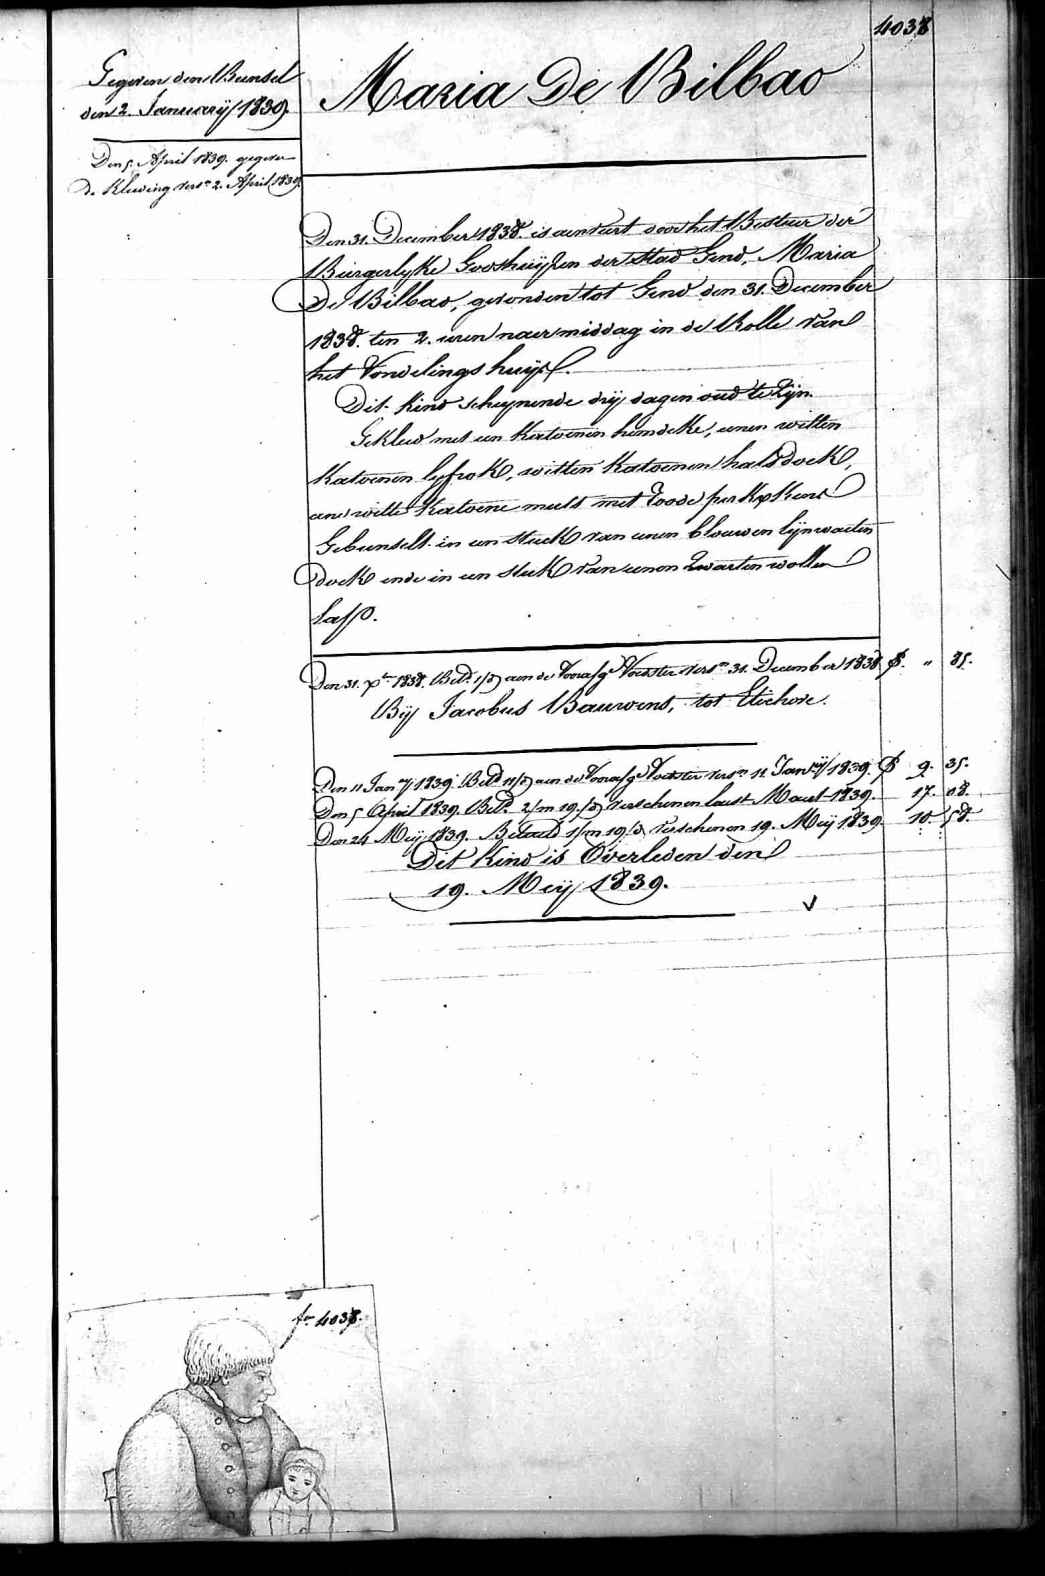 4038
Gegeven den Bunsel
den 2. Januarÿ 1839.
Maria De Bilbao
Den 5. April 1839. gegeven
de Kleeding vers.n 2. April 1839.
Den 31. December 1838. is aenveirt door het Bestuer der
Burgerlyke Godshuÿzen der Stad Gend, Maria
De Bilbao, gevonden tot Gend den 31. December
1838. ten 2. uren naermiddag in de Rolle van
het Vondelingshuÿs.
Dit kind schynende drÿ dagen oud te zÿn.
Gekleed met een Katoenen hemdeke, eenen witten
Katoenen lyfrok, witten Katoenen halsdoek,
eene witte Katoene muts met roode perkxkens
Gebunselt in een stuck van eenen blauwen lÿnwaeten
doek ende in een stuk van eenen zwarten wollen
las.
Den 31. Xbr 1838. Bet.d 1/d aen de Voorafg.e Voedster vers.n 31. December 1838. f. " 85.
Bÿ Jacobus Bauwens, tot Etichove.
Den 11 Jan.rÿ 1839. Bet.d 11/d aen de Voorafg.e Voedster vers.n 11 Jan.rÿ 1839. f 9. 35.
Den 5 April 1839. Bet.d 2/m 19./d verschenen laest Maert 1839. 17. 08.
Den 24 Meÿ 1839. Betaeld 1/m 19/d verschenen 19. Meÿ 1839. 10. 58.
Dit kind is Overleden den
19. Meÿ 1839.
f.o 4038.